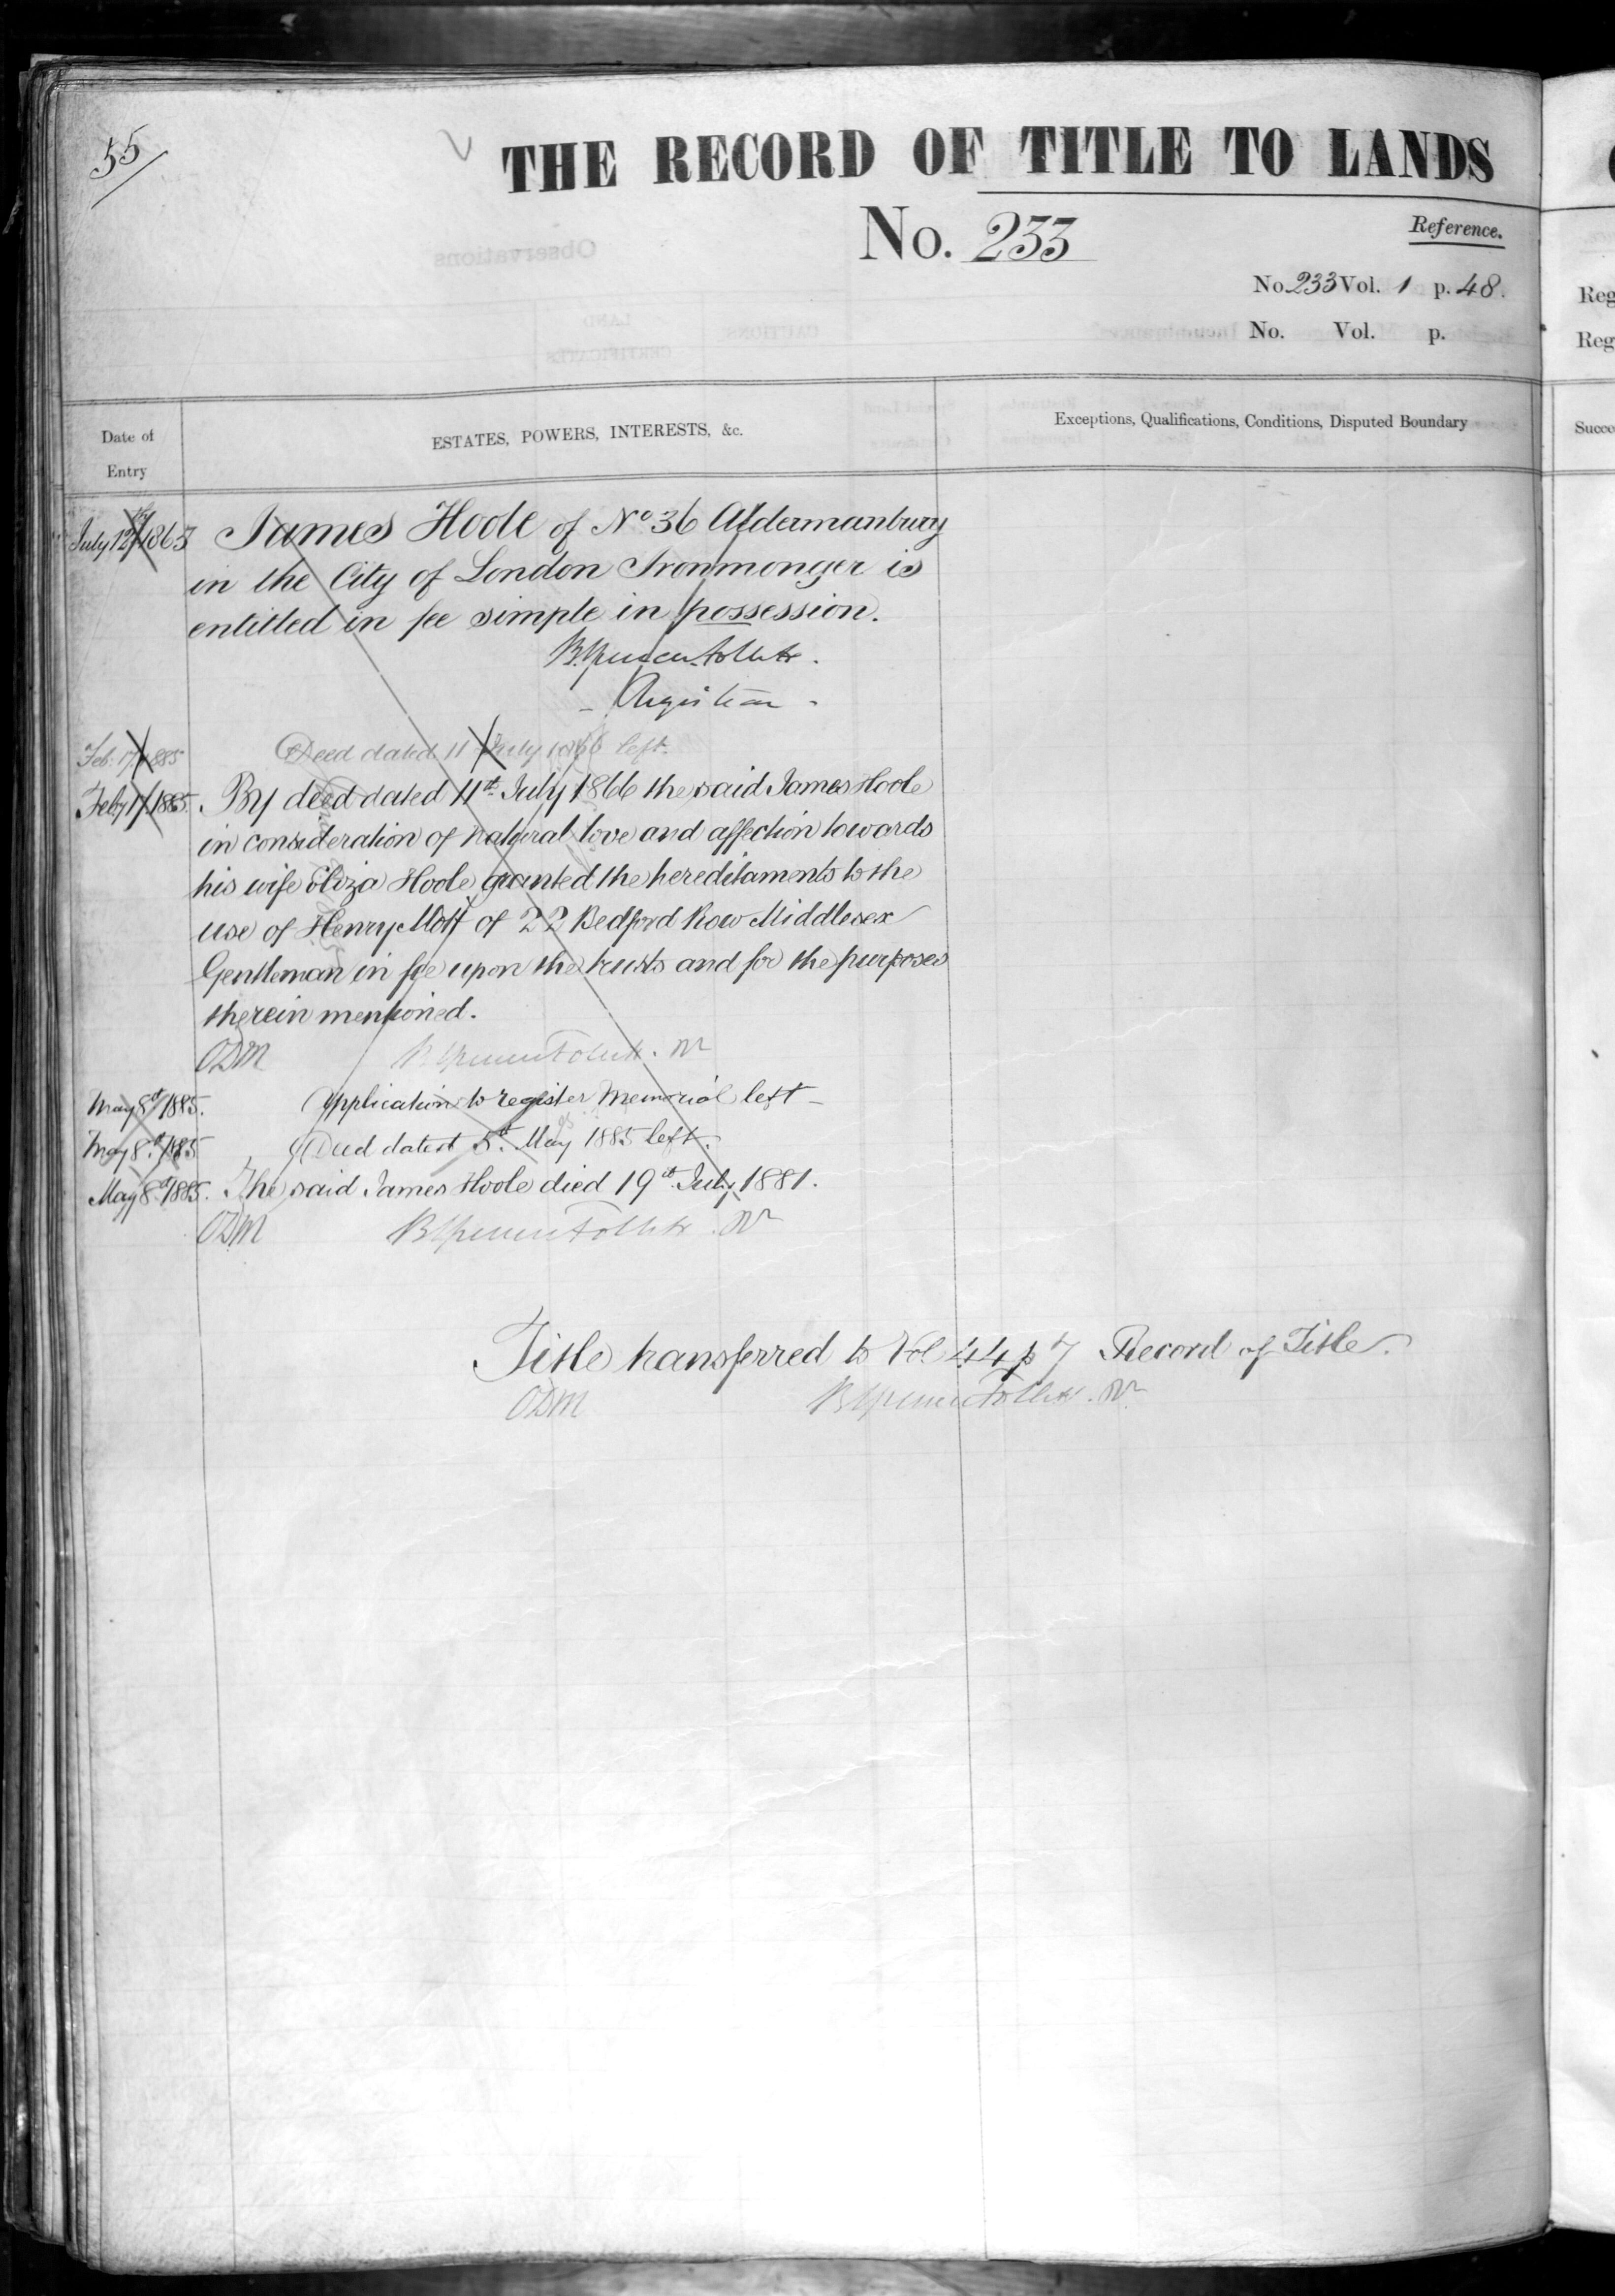 55
THE RECORD OF TITLE TO LANDS
No. 233
Reference.
No 233 Vol. 1 p. 48.
No. Vol. p.
Date of
Entry
ESTATES, POWERS, INTERESTS, &c.
Exceptions, Qualifications, Conditions, Disputed Boundary
Reg
Reg
Succe
July 12th 1865 James Hoole of No 36 Aldermanbury
in the City of London Ironmonger is
entitled in fee simple in possession.
Registrar
Feb. 17 1885 Deed dated 11 July 1866 left.
Feby 17 1885. By deed dated 11th July 1866 the said James Hoole
in consideration of natural love and affection towards
his wife Eliza Hoole granted the hereditaments to the
use of Henry Mott of 22 Bedford Row Middlesex
Gentleman in fee upon the trusts and for the purposes
therein mentioned.
ODM
May 8th 1885. Application to register Memorial left
May 8th 1885 Deed dated 5th May 1885 left.
May 8th 1885. The said James Hoole died 19th July 1881.
ODM
Title transferred to Vol 44 p 7 Record of Title.
ODM